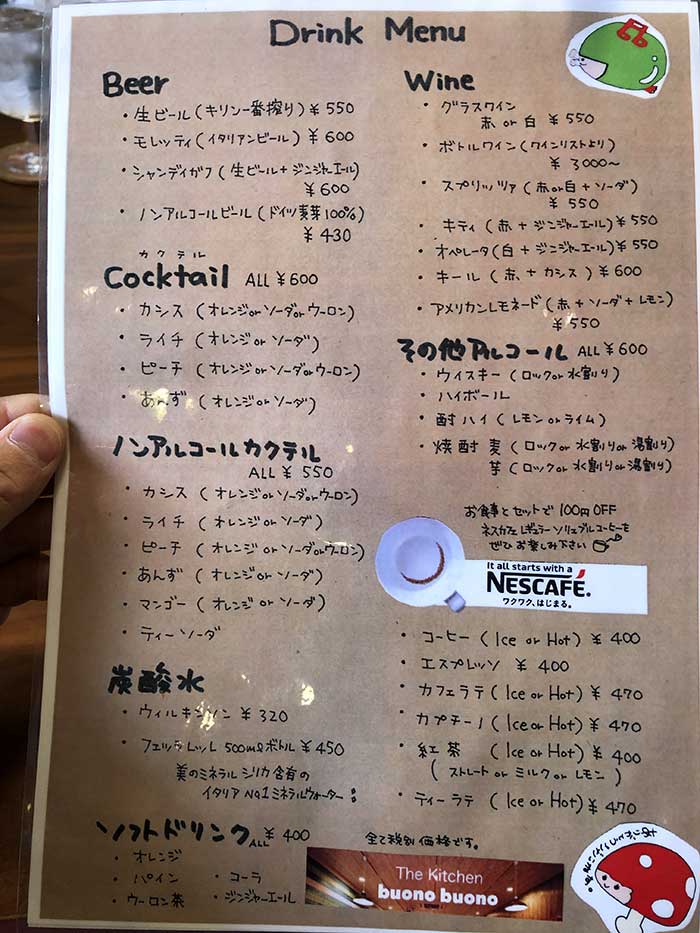 Drink Menu
Beer
・生ビール(キリン一番搾り)¥550
・モレッティ(イタリアンビール)¥600
・シャンディガフ(生ビール+ジンジャーエール)
¥600
・ノンアルコールビール(ドイツ麦芽100%)
¥430
カクテル
Cocktail ALL ¥600
・カシス(オレンジorソーダorウーロン)
・ライチ(オレンジorソーダ)
・ピーチ(オレンジorソーダorウーロン)
・あんず(オレンジorソーダ)
ノンアルコールカクテル
ALL ¥550
・カシス(オレンジorソーダorウーロン)
・ライチ(オレンジorソーダ)
・ピーチ(オレンジorソーダorウーロン)
・あんず(オレンジorソーダ)
・マンゴー(オレンジorソーダ)
・ティーソーダ
炭酸水
・ウィルキンソン ¥320
・フェッラレッレ 500mlボトル ¥450
美のミネラル シリカ含有の
イタリア No.1ミネラルウォーター
ソフトドリンク ALL ¥400
・オレンジ
・パイン ・コーラ
・ウーロン茶 ・ジンジャーエール
Wine
・グラスワイン
赤 or 白 ¥550
・ボトルワイン(ワインリストより)
¥3000〜
・スプリッツァ(赤or白+ソーダ)
¥550
・キティ(赤+ジンジャーエール)¥550
・オペレータ(白+ジンジャーエール)¥550
・キール(赤+カシス)¥600
・アメリカンレモネード(赤+ソーダ+レモン)
¥550
その他アルコール ALL ¥600
・ウィスキー(ロックor水割り)
・ハイボール
・酎ハイ(レモンorライム)
・焼酎 麦(ロックor水割りor湯割り)
芋(ロックor水割りor湯割り)
お食事とセットで100円OFF
ネスカフェ レギュラーソリュブルコーヒーを
ぜひお楽しみ下さい
It all starts with a
NESCAFÉ.
ワクワク、はじまる。
・コーヒー(Ice or Hot)¥400
・エスプレッソ ¥400
・カフェラテ(Ice or Hot)¥470
・カプチーノ(Ice or Hot)¥470
・紅茶(Ice or Hot)¥400
(ストレート or ミルク or レモン)
・ティーラテ(Ice or Hot)¥470
全て税別価格です。
The Kitchen
buono buono